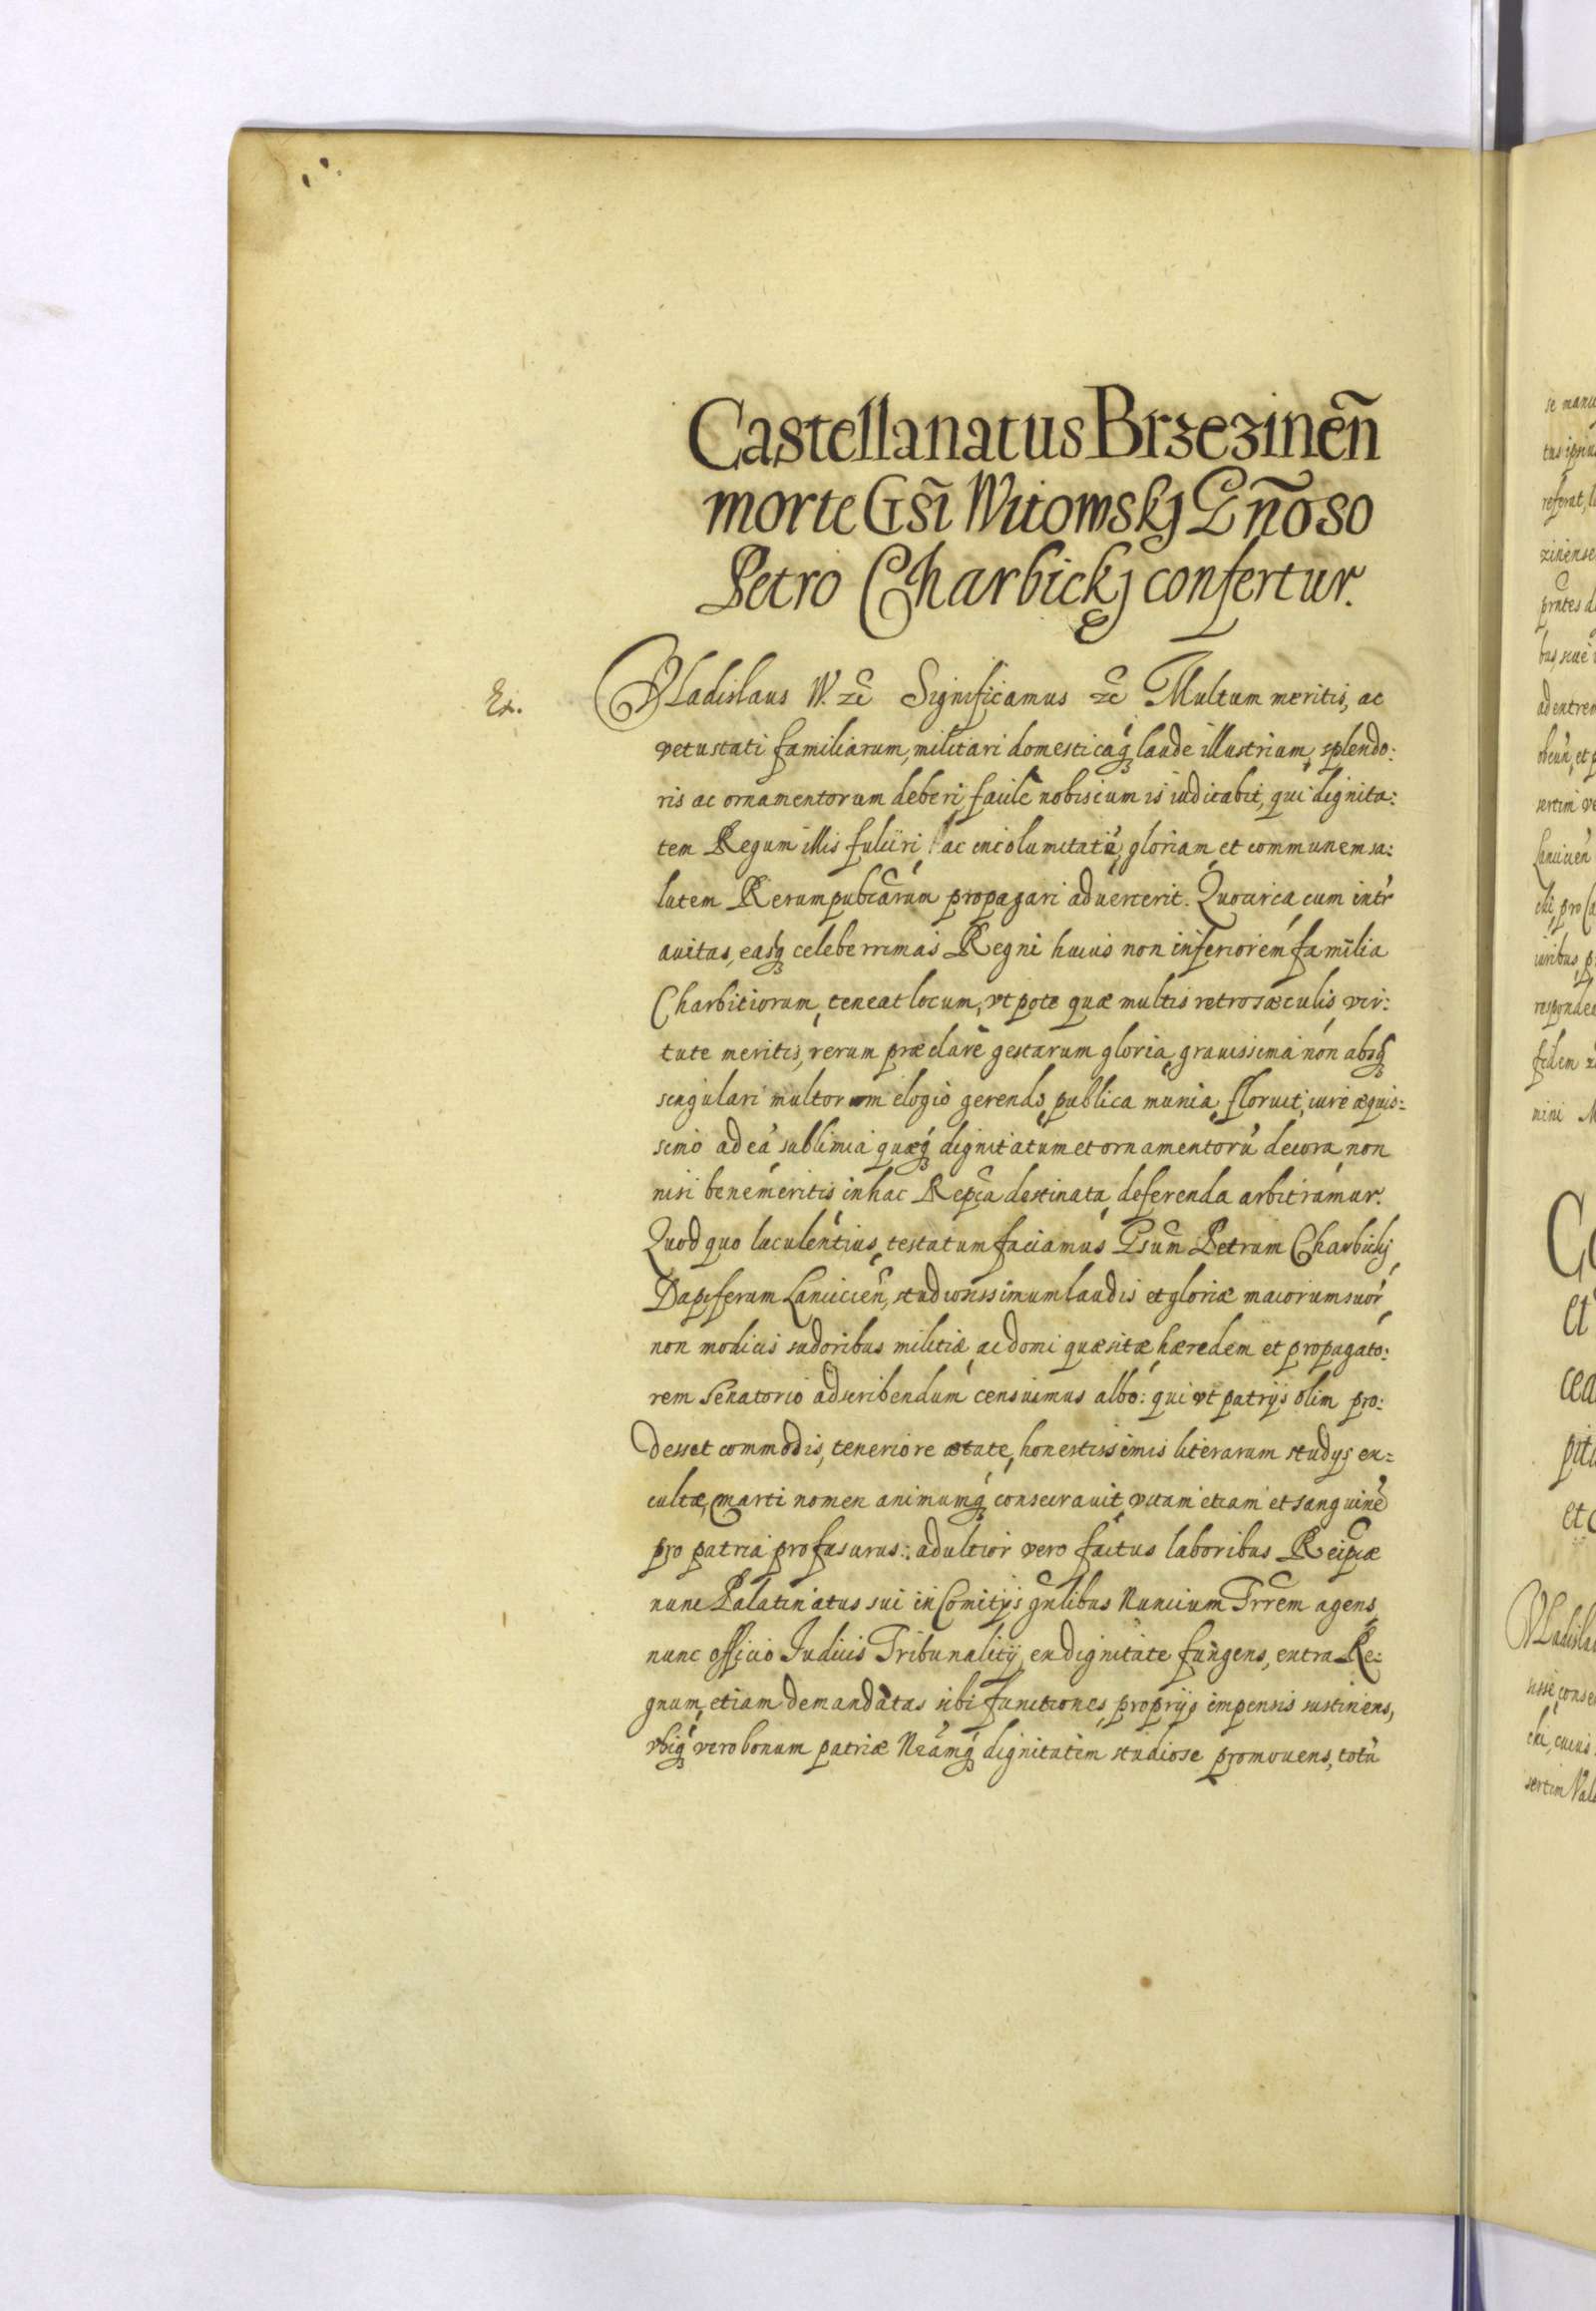 Castellanatus Brzezinen̄
morte Gsi Witowskj Gn̄oso
Petro Charbickj confertur.
Ex.
Vladislaus IV. &c Significamus &c Multum meritis, ac
vetustati familiarum, militari domesticaq́; laude illustrium, splendo:
ris ac ornamentorum deberi, facile nobiscum is iudicabit, qui dignita:
tem Regum illis fulciri, ac incolumitatē, gloriam et communem sa:
lutem Rerumpubcarum propagari aduerterit. Quocirca cum intr
auitas, easq; celeberrimas Regni huius non inferiorem familia
Charbiciorum, teneat locum, vt pote quæ multis retro sæculis, vir:
tute meritis, rerum præclarè gestarum gloria, grauissima non absq;
singulari multorum elogio gerendo publica munia, floruit, iure æquis:
simo ad ea sublimia quæq́; dignitatum et ornamentorũ decora, non
nisi benemeritis in hac Repca destinata, deferenda arbitramur.
Quod quo luculentius, testatum faciamus Gsum Petrum Charbickj
Dapiferum Lancicien̄, studiosissimum laudis et gloriæ maiorum suor
non modicis sudoribus militiæ, ac domi quæsitæ, hæredem et propagato:
rem Senatorio adscribendum censuimus albo: qui vt patrijs olim pro:
desset commodis, teneriore ætate, honestissimis literarum studijs ex:
cultæ, Marti nomen animumq́; consecrauit, vitam etiam et sanguinē
pro patria profusurus: adultior vero factus laboribus Reipcæ
nunc Palatinatus sui in Comitijs gnlibus Nuncium Trrem agens,
nunc officio Iudicis Tribunalitij, ex dignitate fungens, extra Re:
gnum, etiam demandatas sibi functiones, proprijs impensis sustinens,
vbiq; vero bonum patriæ Nramq́; dignitatem studiose promouens, totũ